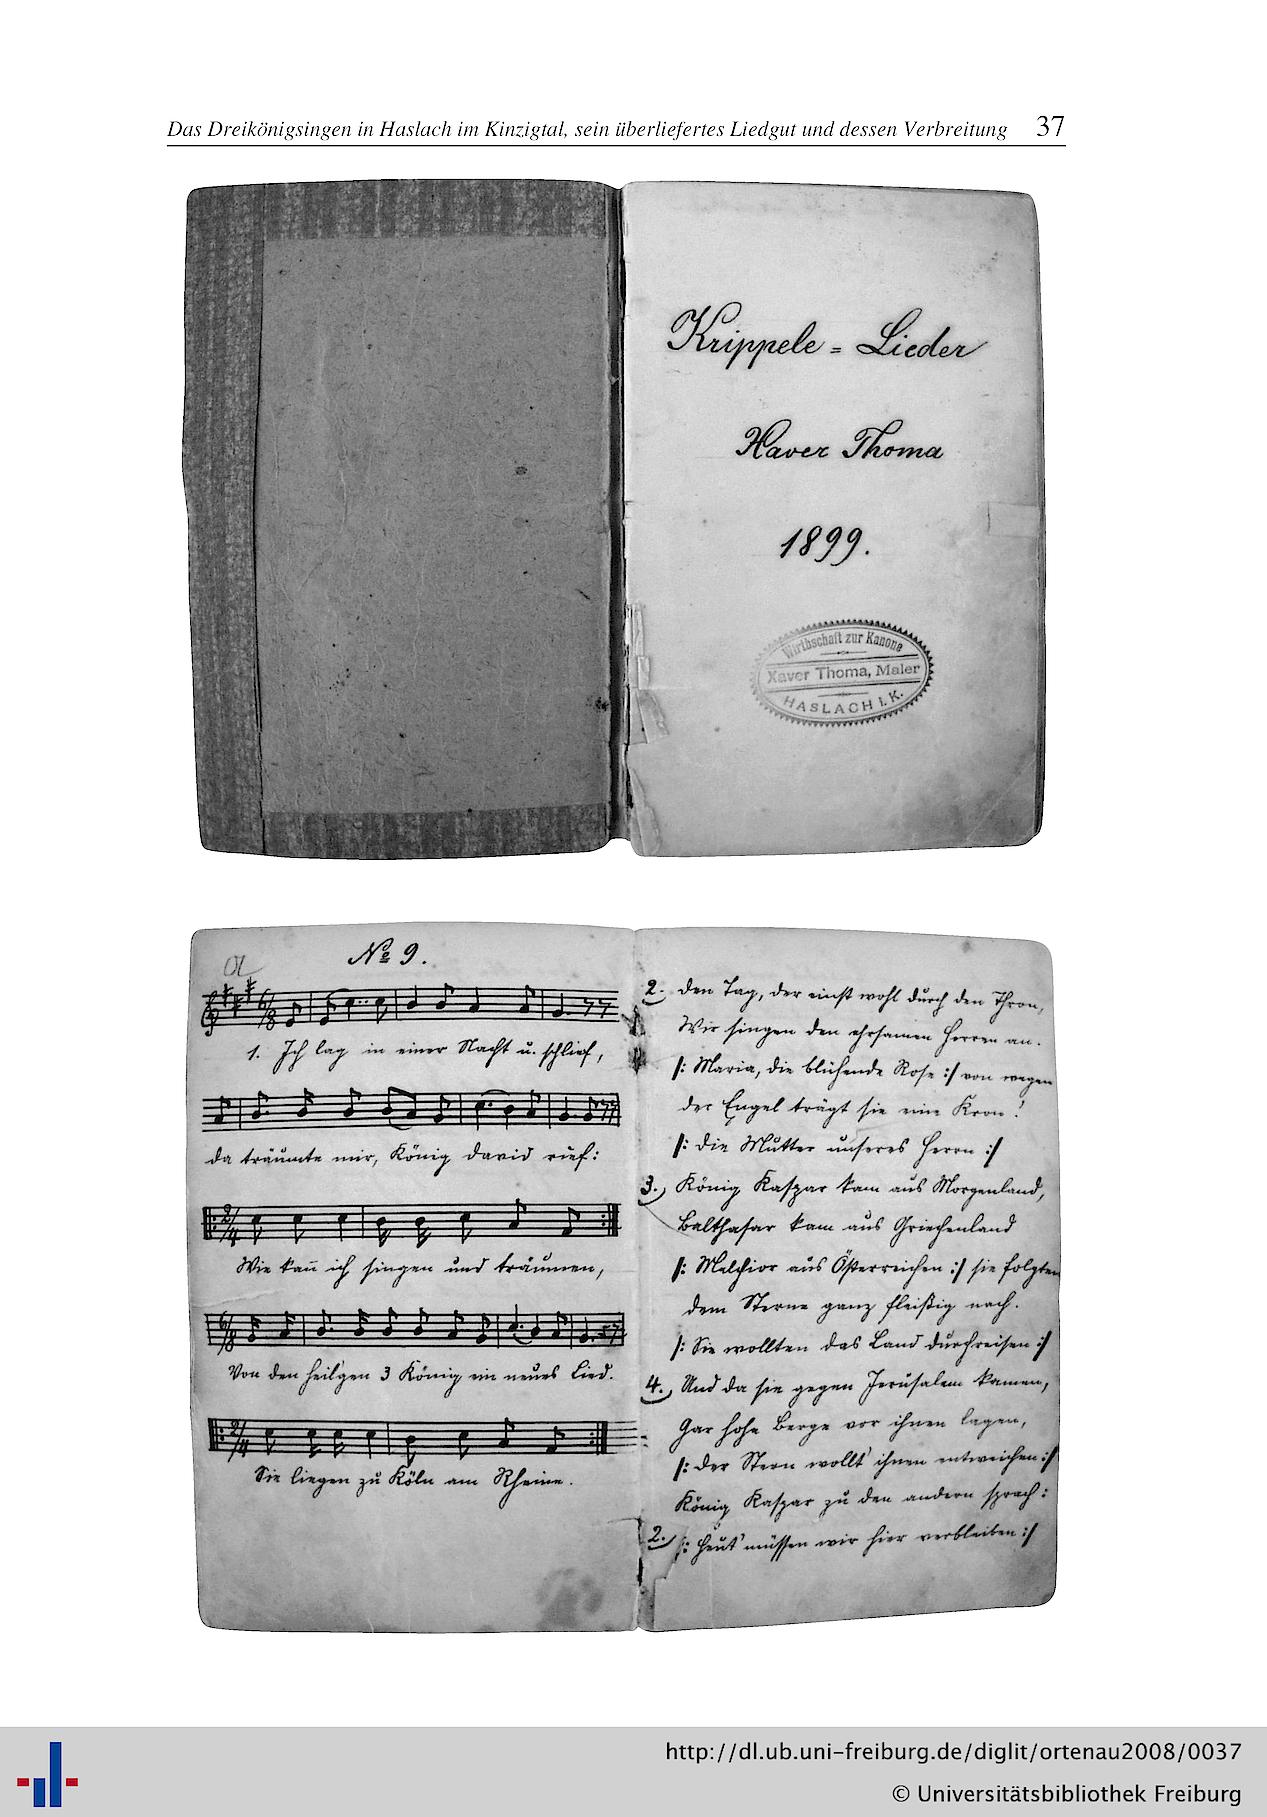 Das Dreikönigsingen in Haslach im Kinzigtal, sein überliefertes Liedgut und dessen Verbreitung 37
Krippele = Lieder
Xaver Thoma
1899.
Wirthschaft zur Kanone
Xaver Thoma, Maler
HASLACH I. K.
№ 9.
1. Ich lag in einer Nacht u. schlief,
da träumte mir, König David rief:
Wie kañ ich singen und träumen,
Von den heilgen 3 König ein neues Lied.
Sie liegen zu Köln am Rheine.
2. Den Tag, der einst wohl durch den Thron,
Wir singen den ehrsamen Herren an.
/: Maria, die blühende Rose :/ von wegen
der Engel trägt sie eine Kron!
/: Die Mutter unseres Herrn :/
3., König Kaspar kam aus Morgenland,
Balthasar kam aus Griechenland
/: Melchior aus Österreichen :/ sie folgten
dem Sterne ganz fleißig nach.
/: Sie wollten das Land durchreisen :/
4., Und da sie gegen Jerusalem kamen,
Gar hohe Berge vor ihnen lagen,
/: Der Stern wollt' ihnen entweichen :/
König Kaspar zu den andern sprach:
2., /: Heut' müssen wir hier verbleiben :/
http://dl.ub.uni-freiburg.de/diglit/ortenau2008/0037
© Universitätsbibliothek Freiburg